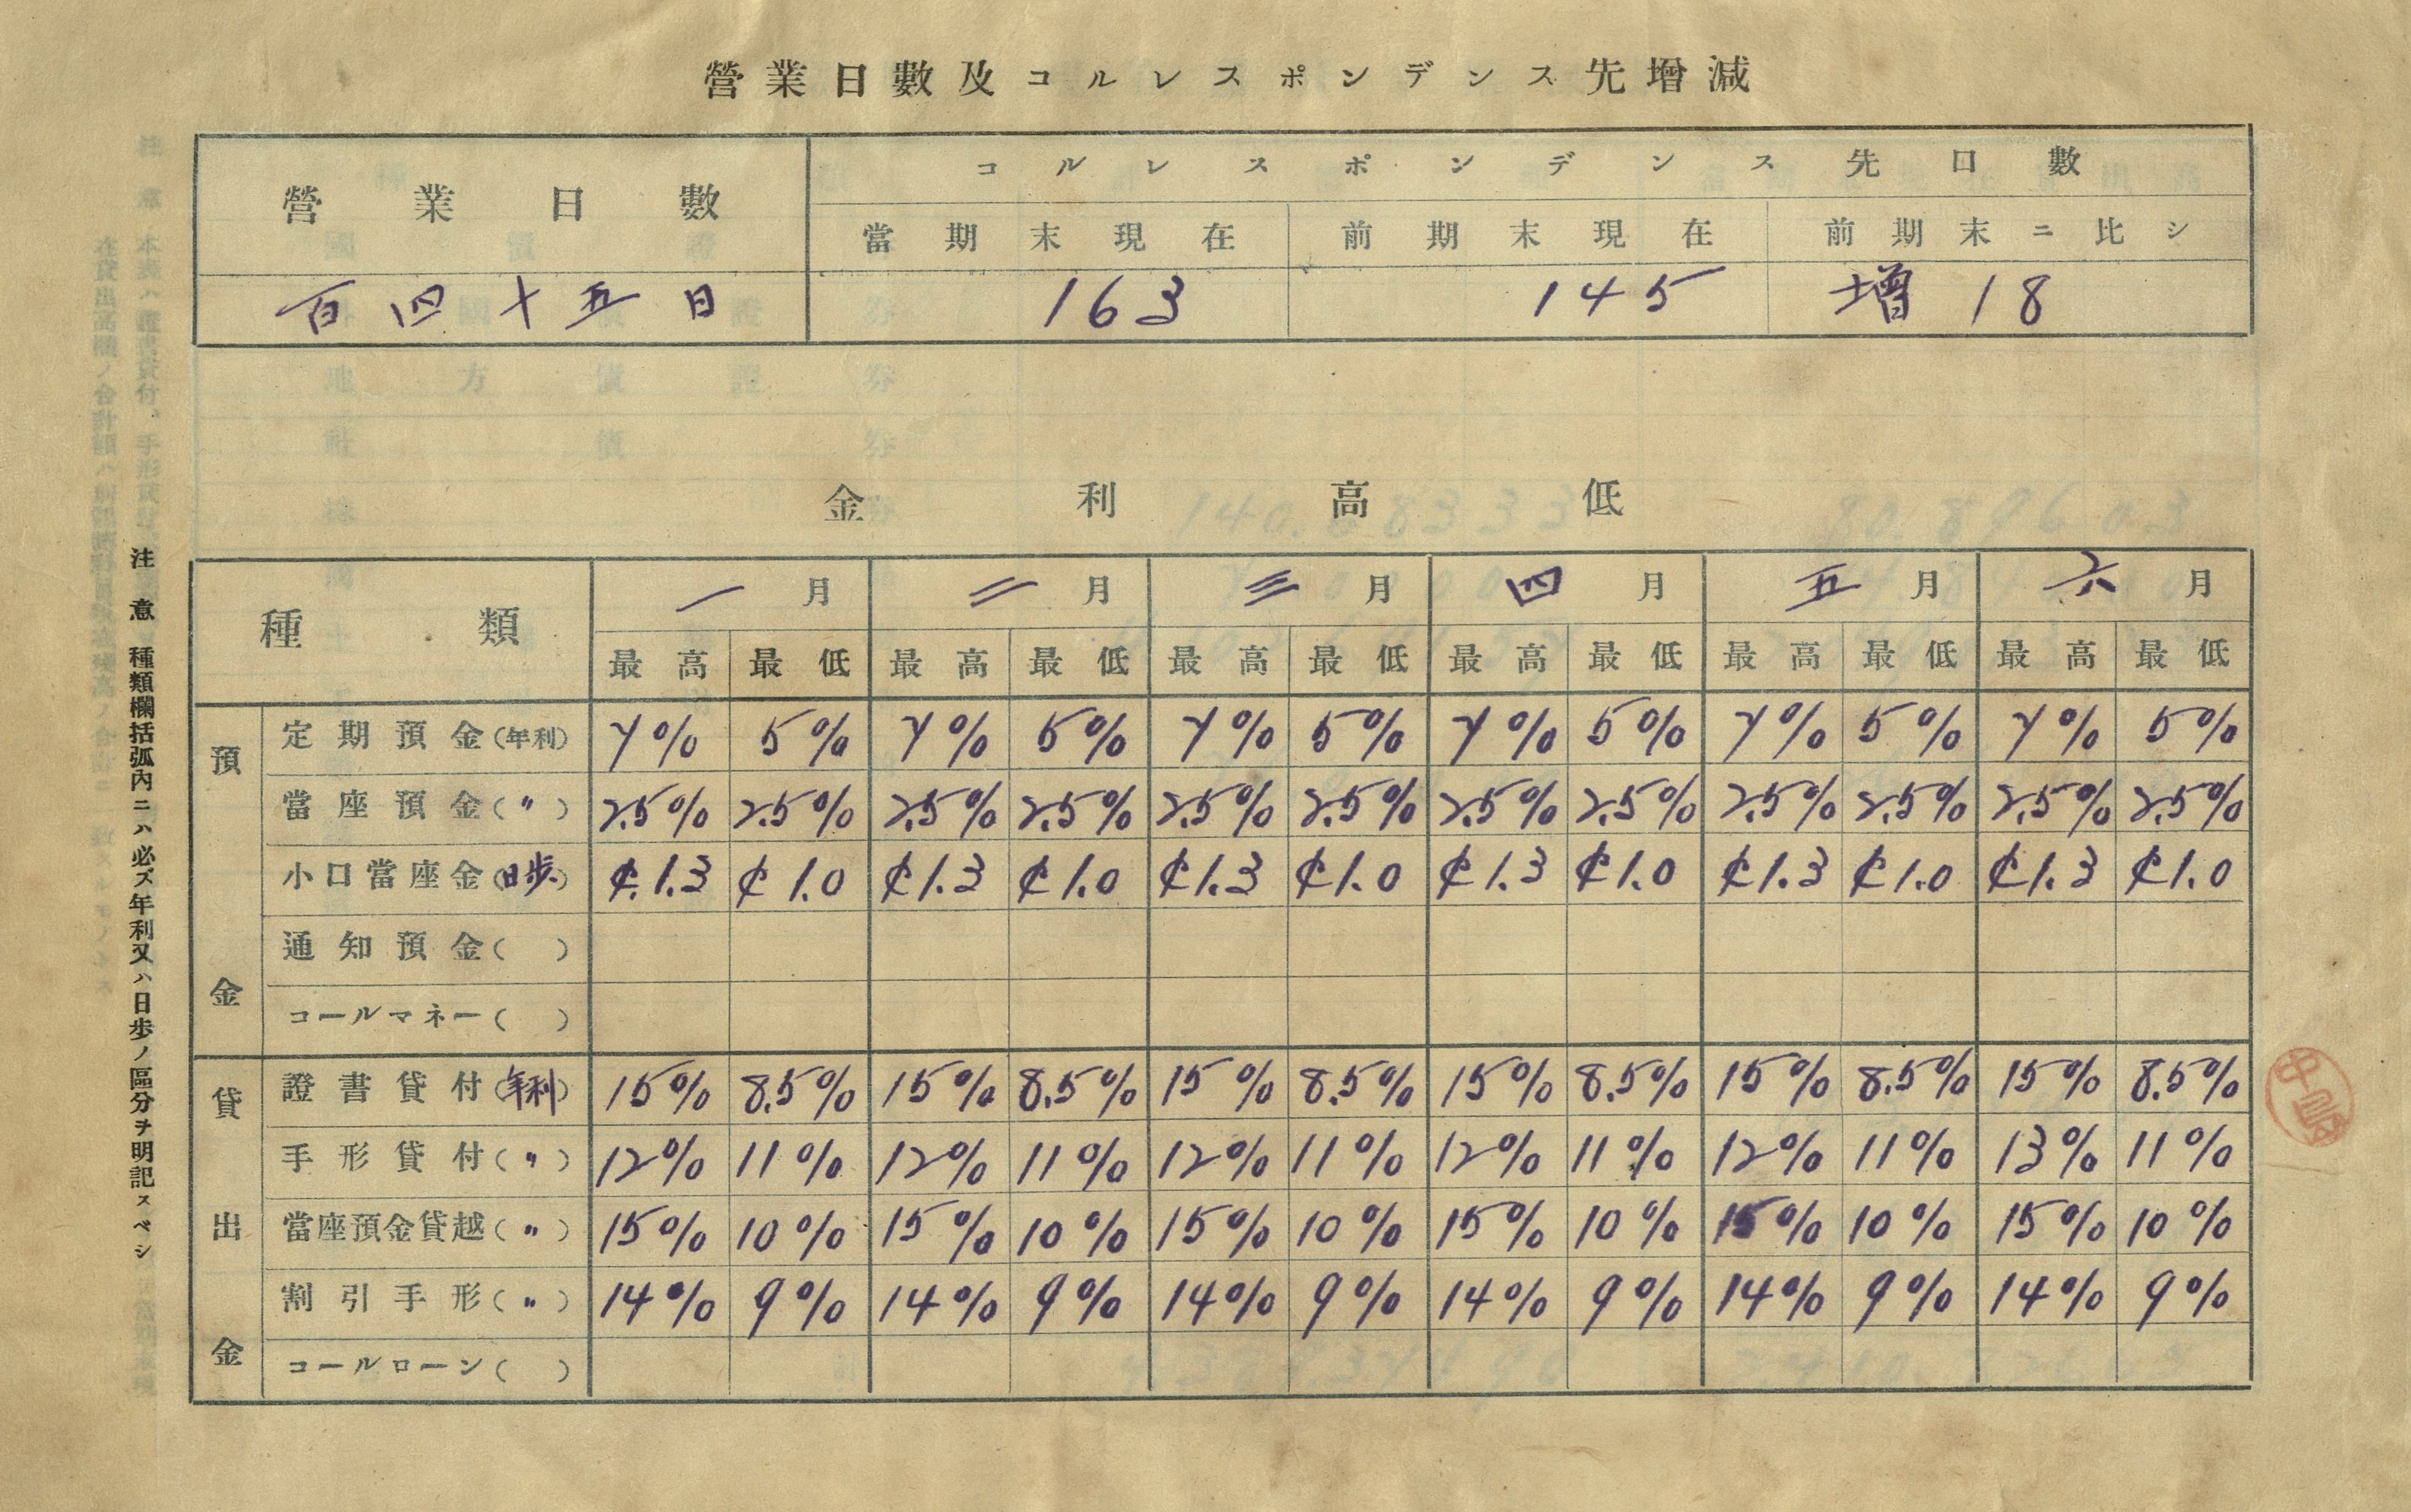 營業日數及コルレスポンデンス先增減
營業日數 コルレスポンデンス先口數
當期末現在 前期末現在 前期末ニ比シ
百四十五日 163 145 增 18
金利高低
種類 一月 二月 三月 四月 五月 六月
最高 最低 最高 最低 最高 最低 最高 最低 最高 最低 最高 最低
預金
定期預金(年利) 7% 5% 7% 5% 7% 5% 7% 5% 7% 5% 7% 5%
當座預金(〃) 2.5% 2.5% 2.5% 2.5% 2.5% 2.5% 2.5% 2.5% 2.5% 2.5% 2.5% 2.5%
小口當座金(日歩) ¢1.3 ¢1.0 ¢1.3 ¢1.0 ¢1.3 ¢1.0 ¢1.3 ¢1.0 ¢1.3 ¢1.0 ¢1.3 ¢1.0
通知預金( )
コールマネー( )
貸出金
證書貸付(年利) 15% 8.5% 15% 8.5% 15% 8.5% 15% 8.5% 15% 8.5% 15% 8.5%
手形貸付(〃) 12% 11% 12% 11% 12% 11% 12% 11% 12% 11% 13% 11%
當座預金貸越(〃) 15% 10% 15% 10% 15% 10% 15% 10% 15% 10% 15% 10%
割引手形(〃) 14% 9% 14% 9% 14% 9% 14% 9% 14% 9% 14% 9%
コールローン( )
注意 種類欄括弧內ニハ必ズ年利又ハ日歩ノ區分ヲ明記スベシ
中島